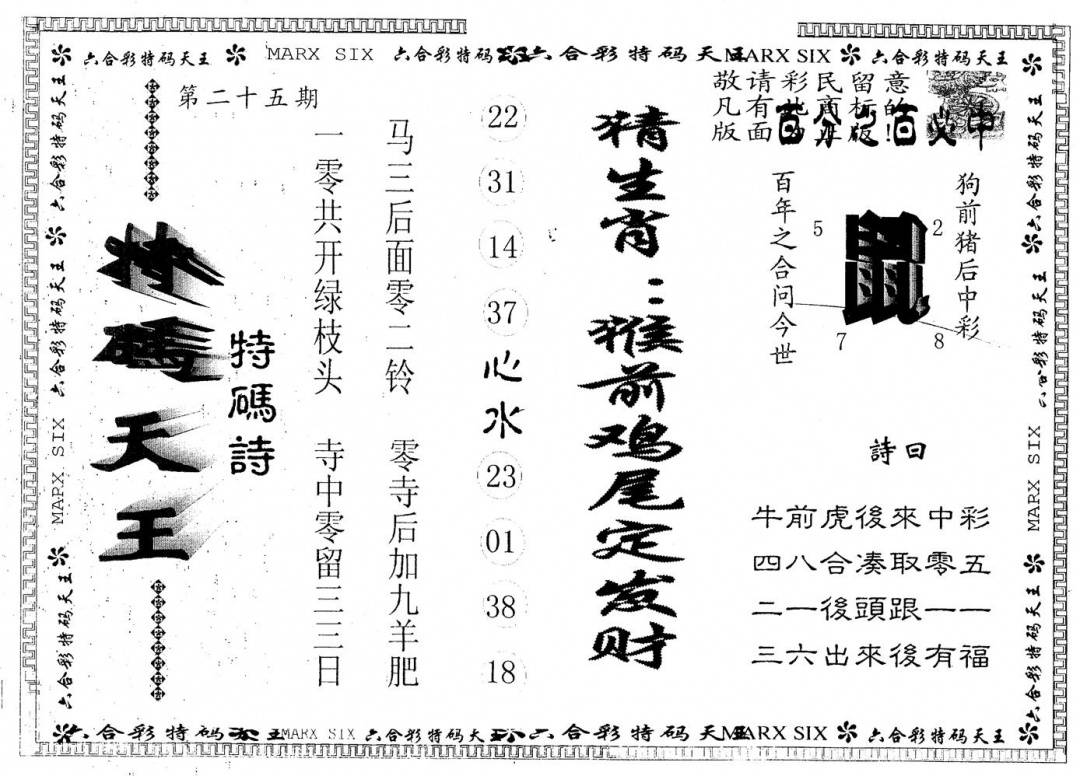 六合彩特码天王 MARX SIX 六合彩特码 六合彩特码天 MARX SIX 六合彩特码天王
第二十五期
特碼天王
特碼詩
一零共开绿枝头 寺中零留三三日
马三后面零二铃 零寺后加九羊肥
22
31
14
37
心水
23
01
38
18
猜生肖：猴前鸡尾定发财
敬请彩民留意
凡有 商标的
版面 版！
百 百必中
狗前猪后中彩
百年之合问今世
鼠
5
2
7
8
詩曰
牛前虎後來中彩
四八合凑取零五
二一後頭跟一一
三六出來後有福
六合彩特码天王 六合彩特码天王 MARX SIX 六合彩特码天王
六合彩特码天王 六合彩特码天王 MARX SIX 六合彩特码天王
六合彩特码 MARX SIX 六合彩特码天 六合彩特码天 MARX SIX 六合彩特码天王